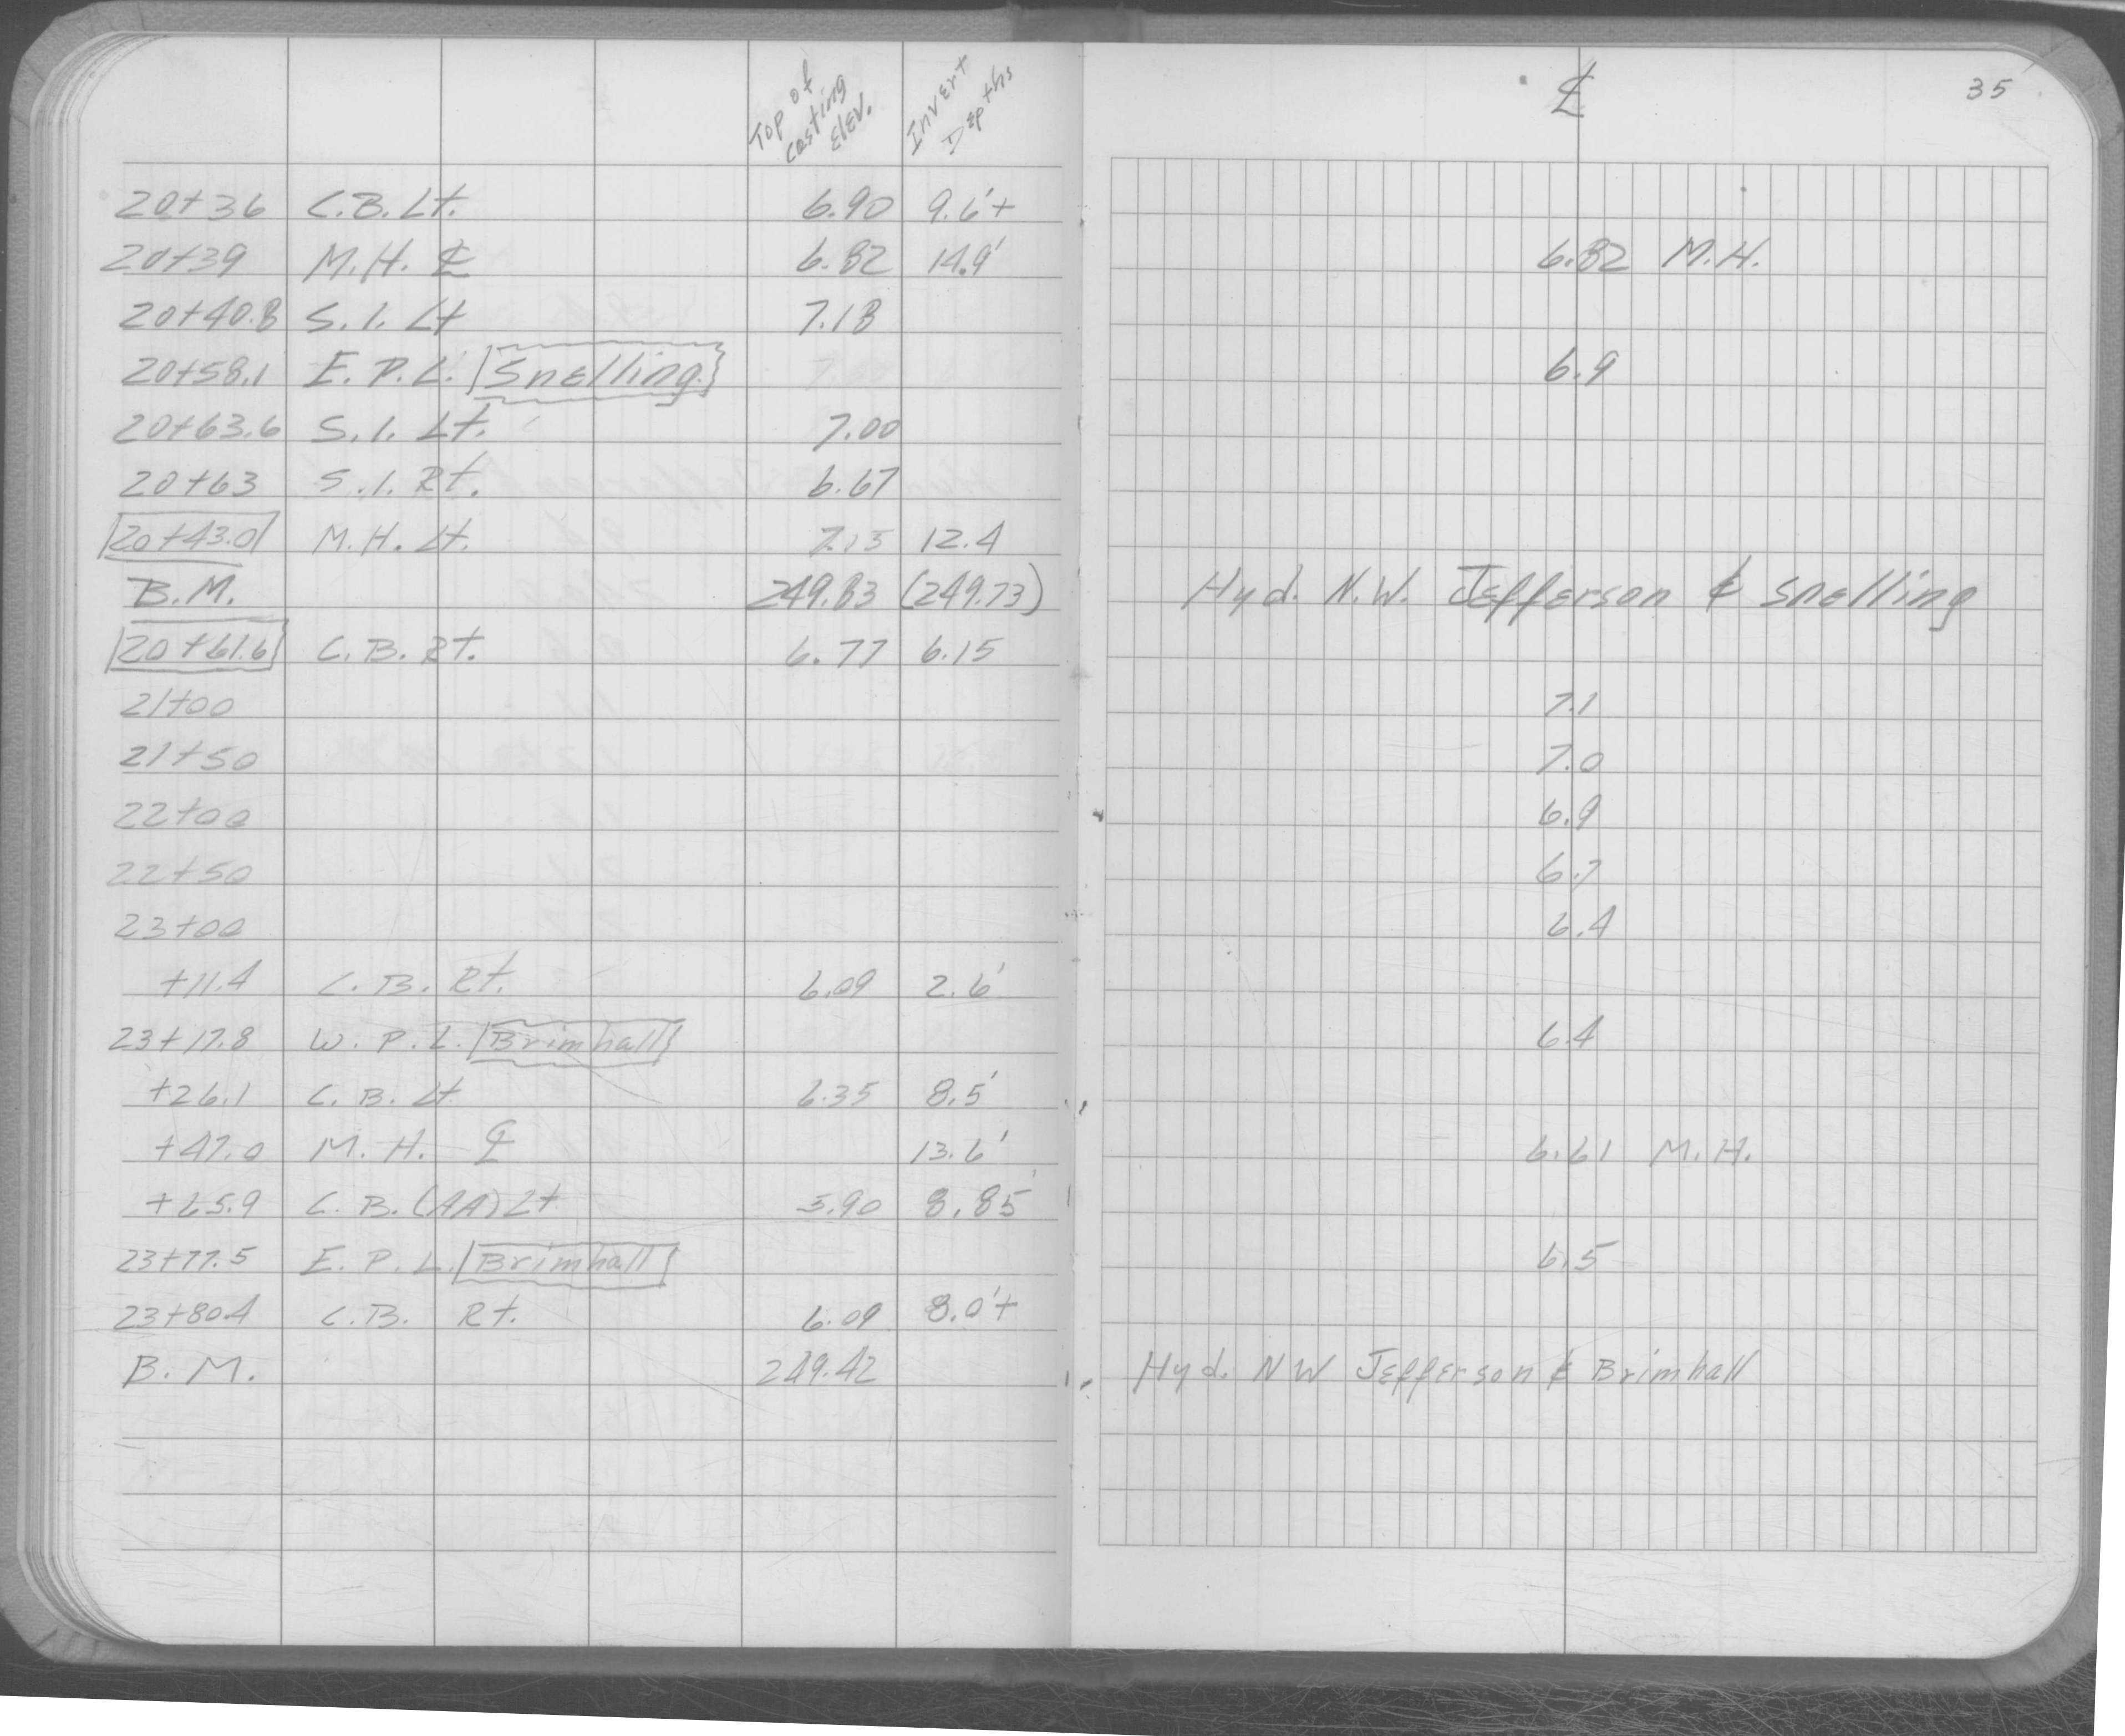 Top of Casting Elev. Invert Depths ℄ 35
20+36 C.B. Lt. 6.90 9.6'+
20+39 M.H. ℄ 6.82 14.9' 6.82 M.H.
20+40.8 S.I. Lt 7.18
20+58.1 E.P.L. Snelling 6.9
20+63.6 S.I. Lt. 7.00
20+63 S.I. Rt. 6.67
20+43.0 M.H. Lt. 7.15 12.4
B.M. 249.83 (249.73) Hyd. N.W. Jefferson & Snelling
20+61.6 C.B. Rt. 6.77 6.15
21+00 7.1
21+50 7.0
22+00 6.9
22+50 6.7
23+00 6.4
+11.4 C.B. Rt. 6.09 2.6'
23+17.8 W.P.L. Brimhall 6.4
+26.1 C.B. Lt 6.35 8.5'
+47.0 M.H. ℄ 13.6' 6.61 M.H.
+65.9 C.B. (AA) Lt 5.90 8.85'
23+77.5 E.P.L. Brimhall 6.5
23+80.4 C.B. Rt. 6.09 8.0'+
B.M. 249.42 Hyd. NW Jefferson & Brimhall